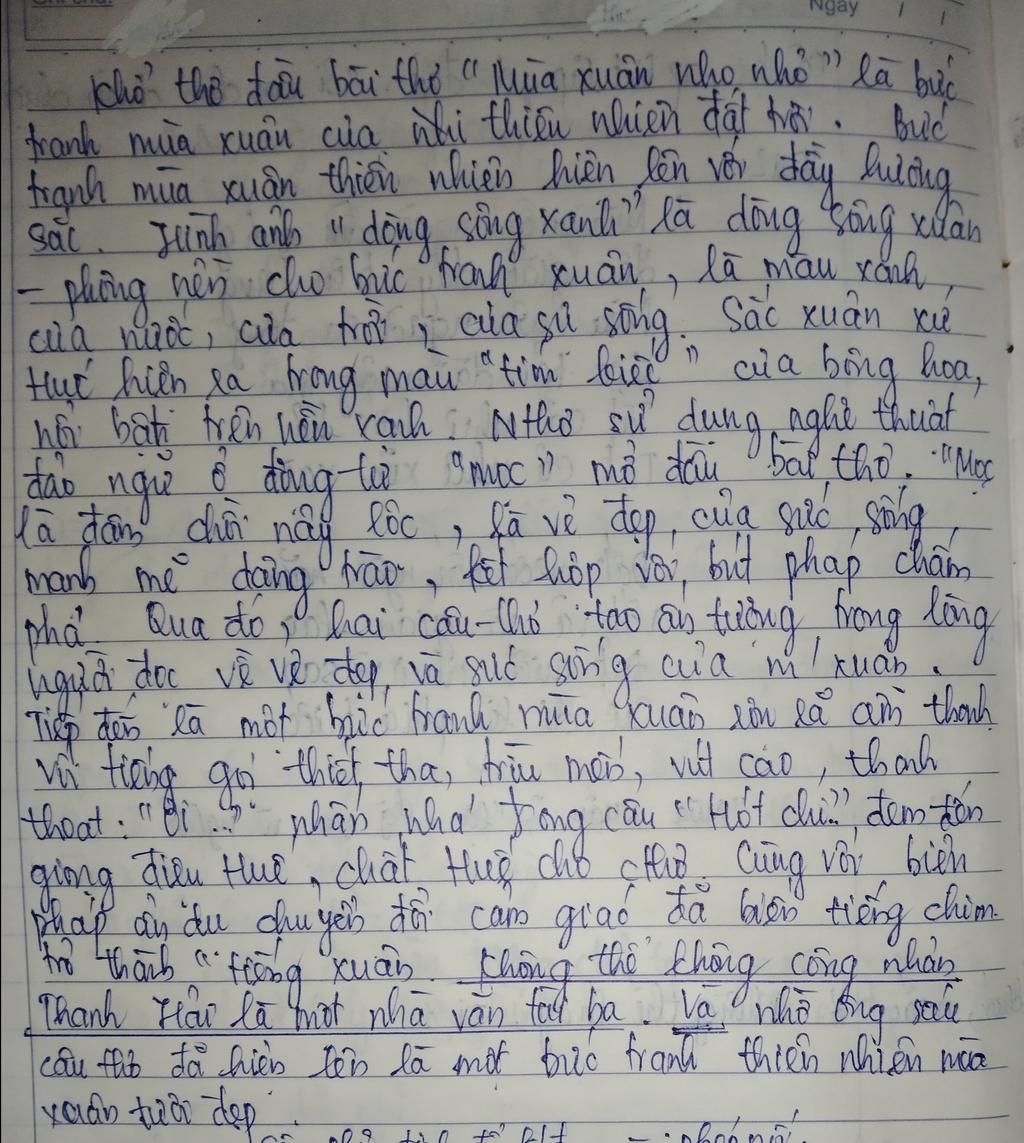 Ngày / /
Khổ thơ đầu bài thơ "Mùa xuân nho nhỏ" là bức
tranh mùa xuân của thiên nhiên đất trời. Bức
tranh mùa xuân thiên nhiên hiện lên với đầy hương
sắc. Hình ảnh "dòng sông xanh" là dòng sông xuân
- phông nền cho bức tranh xuân, là màu xanh
của nước, của trời, của sự sống. Sắc xuân xứ
Huế hiện ra trong màu "tím biếc" của bông hoa,
nổi bật trên nền xanh. Nthơ sử dụng nghệ thuật
đảo ngữ ở động từ "mọc" mở đầu bài thơ. "Mọc
là đâm chồi nảy lộc, là vẻ đẹp của sức sống
mạnh mẽ dâng trào, kết hợp với bút pháp chấm
phá. Qua đó, hai câu thơ tạo ấn tượng trong lòng
người đọc về vẻ đẹp và sức sống của m/xuân.
Tiếp đến là một bức tranh mùa xuân rộn rã âm thanh
với tiếng gọi thiết tha, trìu mến, vút cao, thanh
thoát: "Ơi ..." nhấn nhá trong câu "Hót chi.." đem đến
giọng điệu Huế, chất Huế cho cthơ. Cùng với biện
pháp ẩn dụ chuyển đổi cảm giác đã biến tiếng chim
trở thành "tiếng xuân. Không thể không công nhận
Thanh Hải là một nhà văn tài ba. Và nhờ ông sáu
câu thơ đã hiện lên là một bức tranh thiên nhiên mùa
xuân tươi đẹp.